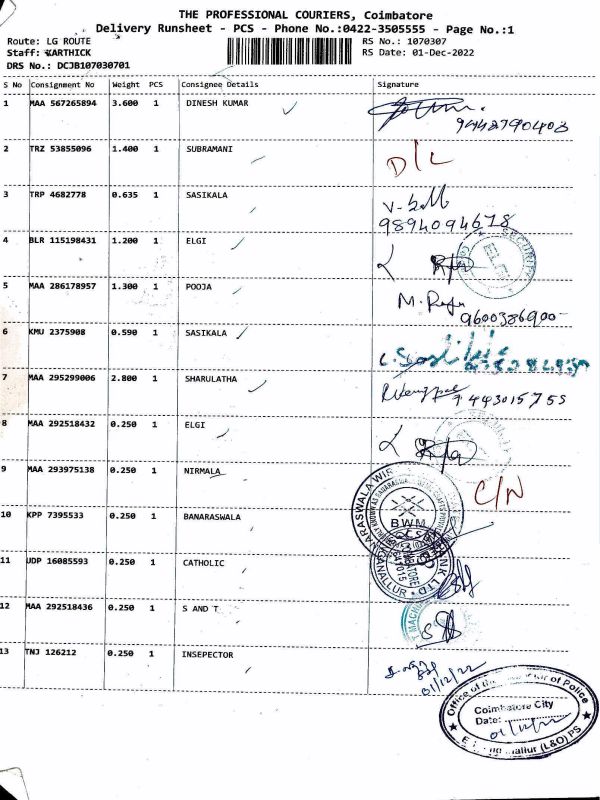 THE PROFESSIONAL COURIERS, Coimbatore
Delivery Runsheet - PCS - Phone No.:0422-3505555 - Page No.:1
Route: LG ROUTE
Staff: KARTHICK
DRS No.: DCJB107030701
RS No.: 1070307
RS Date: 01-Dec-2022
S No Consignment No Weight PCS Consignee Details Signature
1 MAA 567265894 3.600 1 DINESH KUMAR
9448790403
2 TRZ 53855096 1.400 1 SUBRAMANI D/L
3 TRP 4682778 0.635 1 SASIKALA
9894094678
4 BLR 115198431 1.200 1 ELGI
SECURITY
ELGI
5 MAA 286178957 1.300 1 POOJA
9600386900
6 KMU 2375908 0.590 1 SASIKALA
7 MAA 295299006 2.800 1 SHARULATHA
7443015755
8 MAA 292518432 0.250 1 ELGI
9 MAA 293975138 0.250 1 NIRMALA C/N
10 KPP 7395533 0.250 1 BANARASWALA
BWM
11 UDP 16085593 0.250 1 CATHOLIC
12 MAA 292518436 0.250 1 S AND T
13 TNJ 126212 0.250 1 INSEPECTOR
01/12/22
Office of the of Police
Coimbatore City
Date:
(L&O) PS